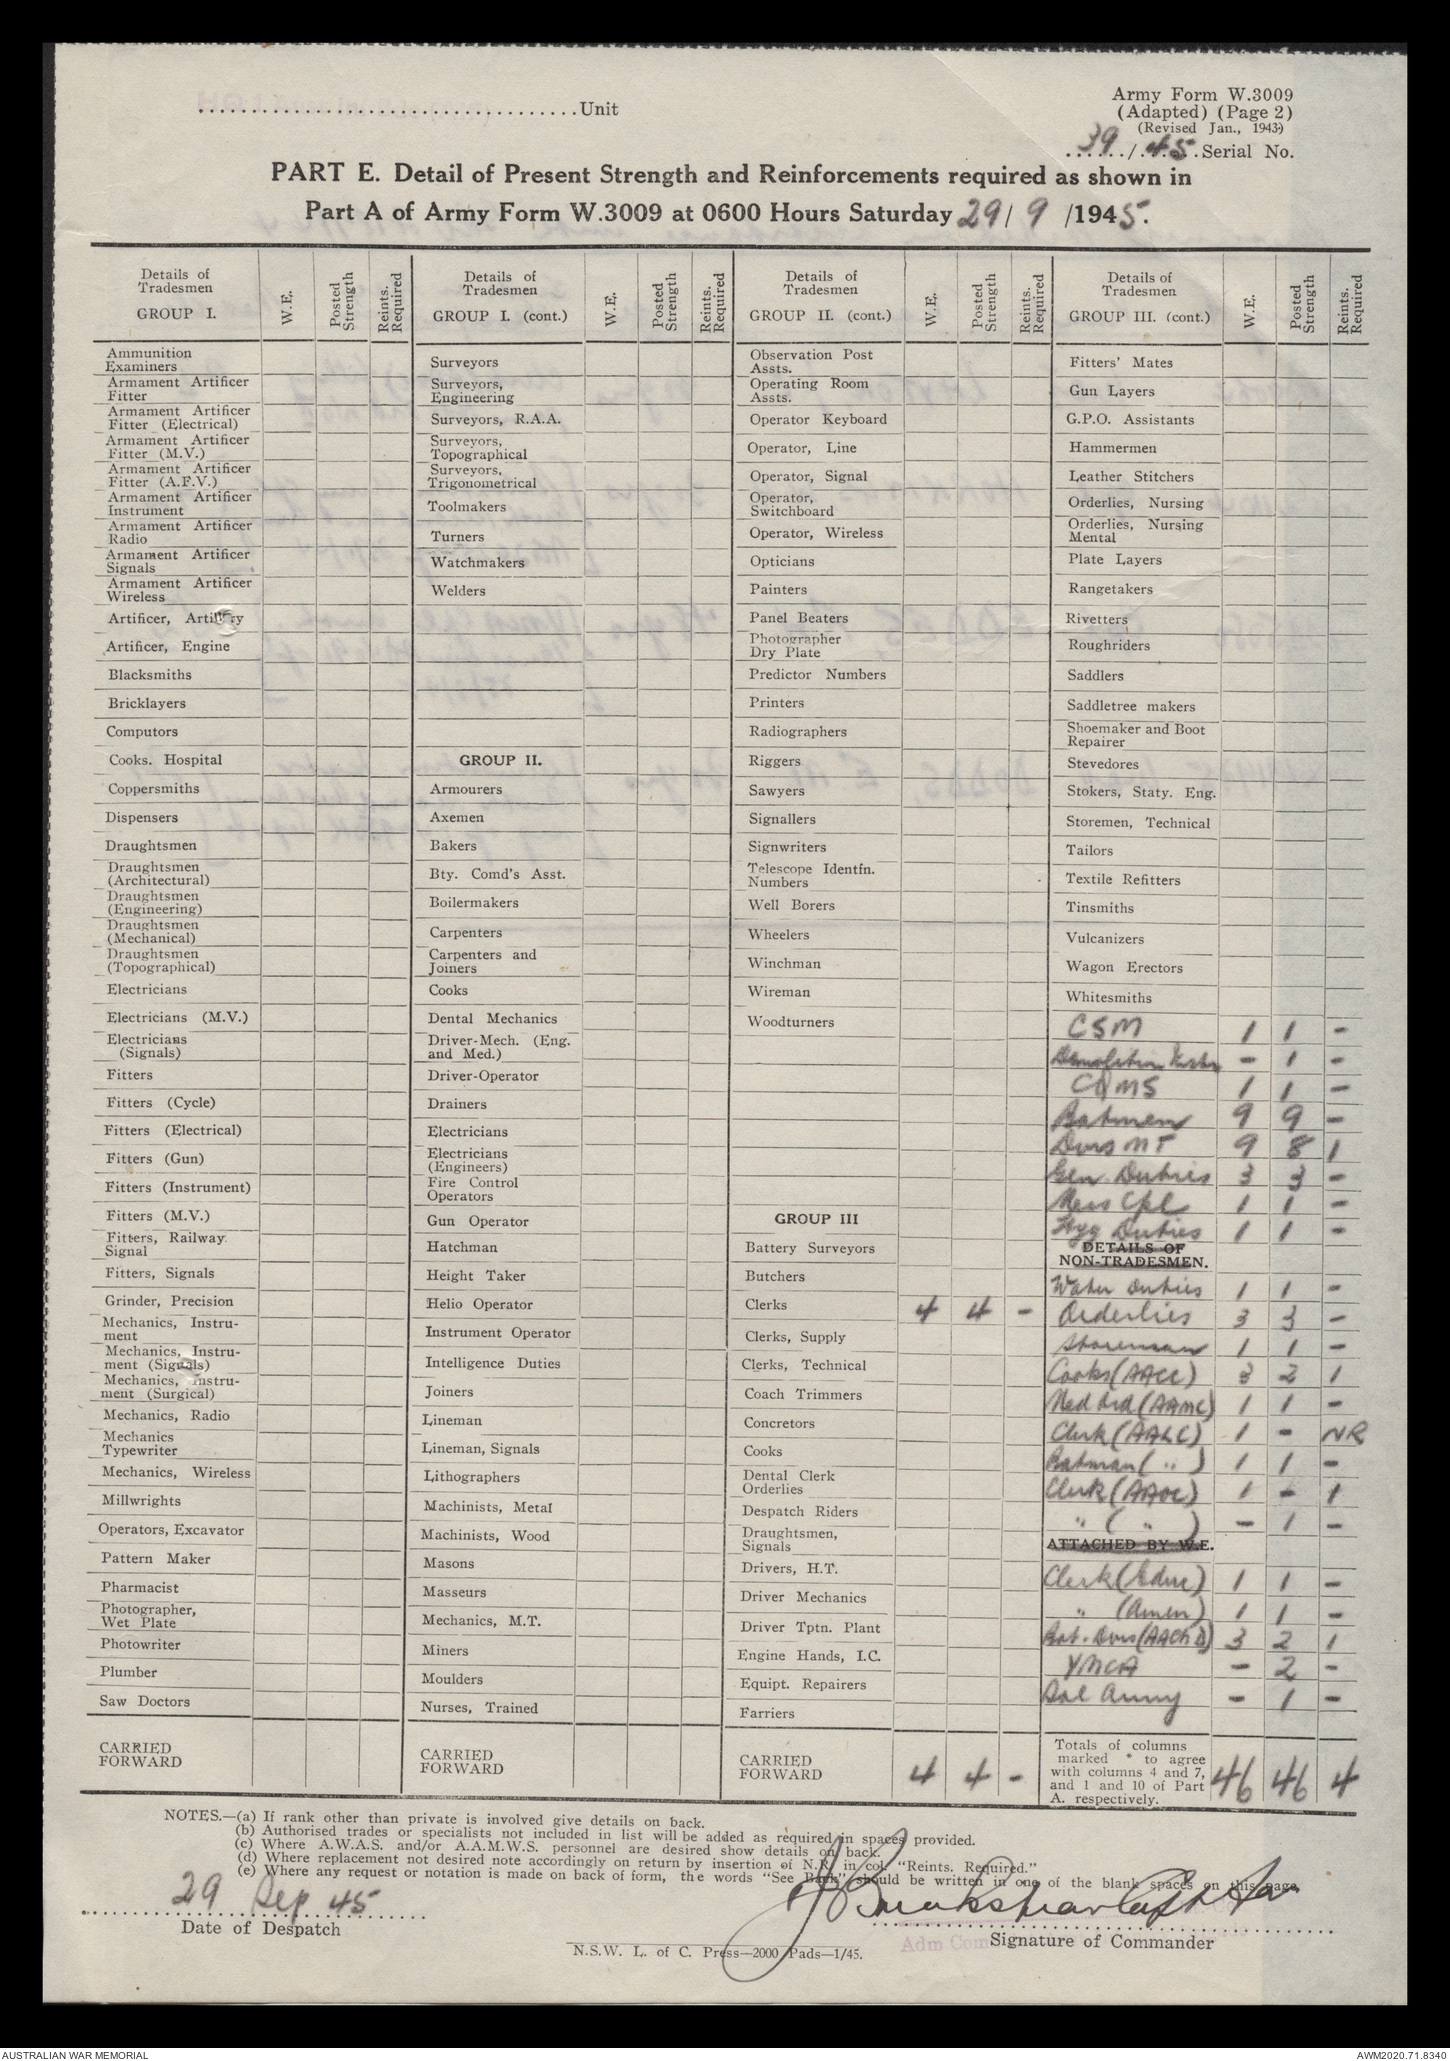 Army Form W.3009
(Adapted) (Page 2)
(Revised Jan., 1943)
Unit
39/45 Serial No.
PART E. Detail of Present Strength and Reinforcements required as shown in
Part A of Army Form W.3009 at 0600 Hours Saturday 29/ 9 /1945.
Details of
Tradesmen
GROUP I.
W.E.
Posted
Strength
Reints.
Required
Ammunition
Examiners
Armament Artificer
Fitter
Armament Artificer
Fitter (Electrical)
Armament Artificer
Fitter (M.V.)
Armament Artificer
Fitter (A.F.V.)
Armament Artificer
Instrument
Armament Artificer
Radio
Armament Artificer
Signals
Armament Artificer
Wireless
Artificer, Artillery
Artificer, Engine
Blacksmiths
Bricklayers
Computors
Cooks. Hospital
Coppersmiths
Dispensers
Draughtsmen
Draughtsmen
(Architectural)
Draughtsmen
(Engineering)
Draughtsmen
(Mechanical)
Draughtsmen
(Topographical)
Electricians
Electricians (M.V.)
Electricians
(Signals)
Fitters
Fitters (Cycle)
Fitters (Electrical)
Fitters (Gun)
Fitters (Instrument)
Fitters (M.V.)
Fitters, Railway
Signal
Fitters, Signals
Grinder, Precision
Mechanics, Instru-
ment
Mechanics, Instru-
ment (Signals)
Mechanics, Instru-
ment (Surgical)
Mechanics, Radio
Mechanics
Typewriter
Mechanics, Wireless
Millwrights
Operators, Excavator
Pattern Maker
Pharmacist
Photographer,
Wet Plate
Photowriter
Plumber
Saw Doctors
CARRIED
FORWARD
Details of
Tradesmen
GROUP I. (cont.)
W.E.
Posted
Strength
Reints.
Required
Surveyors
Surveyors,
Engineering
Surveyors, R.A.A.
Surveyors,
Topographical
Surveyors,
Trigonometrical
Toolmakers
Turners
Watchmakers
Welders
GROUP II.
Armourers
Axemen
Bakers
Bty. Comd's Asst.
Boilermakers
Carpenters
Carpenters and
Joiners
Cooks
Dental Mechanics
Driver-Mech. (Eng.
and Med.)
Driver-Operator
Drainers
Electricians
Electricians
(Engineers)
Fire Control
Operators
Gun Operator
Hatchman
Height Taker
Helio Operator
Instrument Operator
Intelligence Duties
Joiners
Lineman
Lineman, Signals
Lithographers
Machinists, Metal
Machinists, Wood
Masons
Masseurs
Mechanics, M.T.
Miners
Moulders
Nurses, Trained
CARRIED
FORWARD
Details of
Tradesmen
GROUP II. (cont.)
W.E.
Posted
Strength
Reints.
Required
Observation Post
Assts.
Operating Room
Assts.
Operator Keyboard
Operator, Line
Operator, Signal
Operator,
Switchboard
Operator, Wireless
Opticians
Painters
Panel Beaters
Photographer
Dry Plate
Predictor Numbers
Printers
Radiographers
Riggers
Sawyers
Signallers
Signwriters
Telescope Identfn.
Numbers
Well Borers
Wheelers
Winchman
Wireman
Woodturners
GROUP III
Battery Surveyors
Butchers
Clerks 4 4 -
Clerks, Supply
Clerks, Technical
Coach Trimmers
Concretors
Cooks
Dental Clerk
Orderlies
Despatch Riders
Draughtsmen,
Signals
Drivers, H.T.
Driver Mechanics
Driver Tptn. Plant
Engine Hands, I.C.
Equipt. Repairers
Farriers
CARRIED
FORWARD 4 4 -
Details of
Tradesmen
GROUP III. (cont.)
W.E.
Posted
Strength
Reints.
Required
Fitters' Mates
Gun Layers
G.P.O. Assistants
Hammermen
Leather Stitchers
Orderlies, Nursing
Orderlies, Nursing
Mental
Plate Layers
Rangetakers
Rivetters
Roughriders
Saddlers
Saddletree makers
Shoemaker and Boot
Repairer
Stevedores
Stokers, Staty. Eng.
Storemen, Technical
Tailors
Textile Refitters
Tinsmiths
Vulcanizers
Wagon Erectors
Whitesmiths
CSM 1 1 -
Demolition - 1 -
CQMS 1 1 -
Batmen 9 9 -
Dvrs MT 9 8 1
Gen Duties 3 3 -
Mess Cpl 1 1 -
Hyg Duties 1 1 -
DETAILS OF
NON-TRADESMEN.
Water Duties 1 1 -
Orderlies 3 3 -
Storeman 1 1 -
Cooks (AACC) 3 2 1
Med Ord (AAMC) 1 1 -
Clerk (AALC) 1 - NR
Batman ( " ) 1 1 -
Clerk (AAOC) 1 - 1
" ( " ) - 1 -
ATTACHED BY W.E.
Clerk (Educ) 1 1 -
" (Amen) 1 1 -
Bat. Dvrs (AAChD) 3 2 1
YMCA - 2 -
Sal Army - 1 -
Totals of columns
marked * to agree
with columns 4 and 7,
and 1 and 10 of Part
A. respectively. 46 46 4
NOTES.—(a) If rank other than private is involved give details on back.
(b) Authorised trades or specialists not included in list will be added as required in spaces provided.
(c) Where A.W.A.S. and/or A.A.M.W.S. personnel are desired show details on back.
(d) Where replacement not desired note accordingly on return by insertion of N.R. in col. "Reints. Required."
(e) Where any request or notation is made on back of form, the words "See Back" should be written in one of the blank spaces on this page.
29 Sep 45
Date of Despatch
Capt for
Signature of Commander
N.S.W. L. of C. Press—2000 Pads—1/45.
AUSTRALIAN WAR MEMORIAL
AWM2020.71.8340